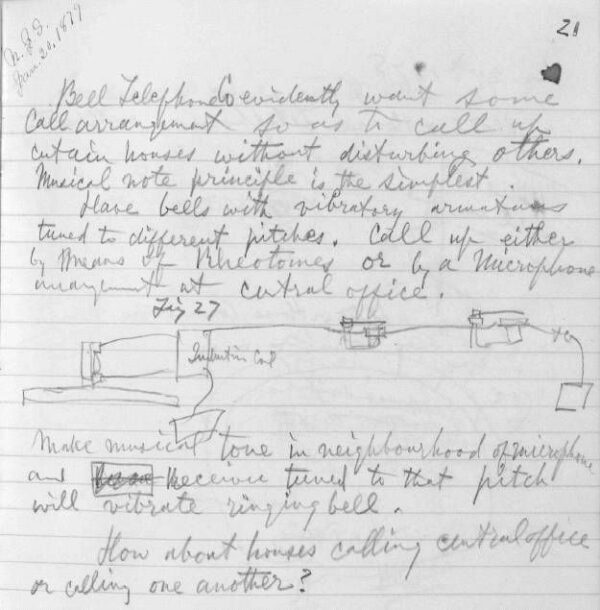 Jan. 20, 1879
21
Bell Telephone Co evidently want some
call arrangement so as to call up
certain houses without disturbing others.
Musical note principle is the simplest.
Have bells with vibratory armatures
tuned to different pitches. Call up either
by means of Rheotomes or by a Microphone
arrangement at central office.
Fig 27
Induction Coil
Make musical tone in neighbourhood of microphone
and receiver tuned to that pitch
will vibrate ringing bell.
How about houses calling central office
or calling one another?